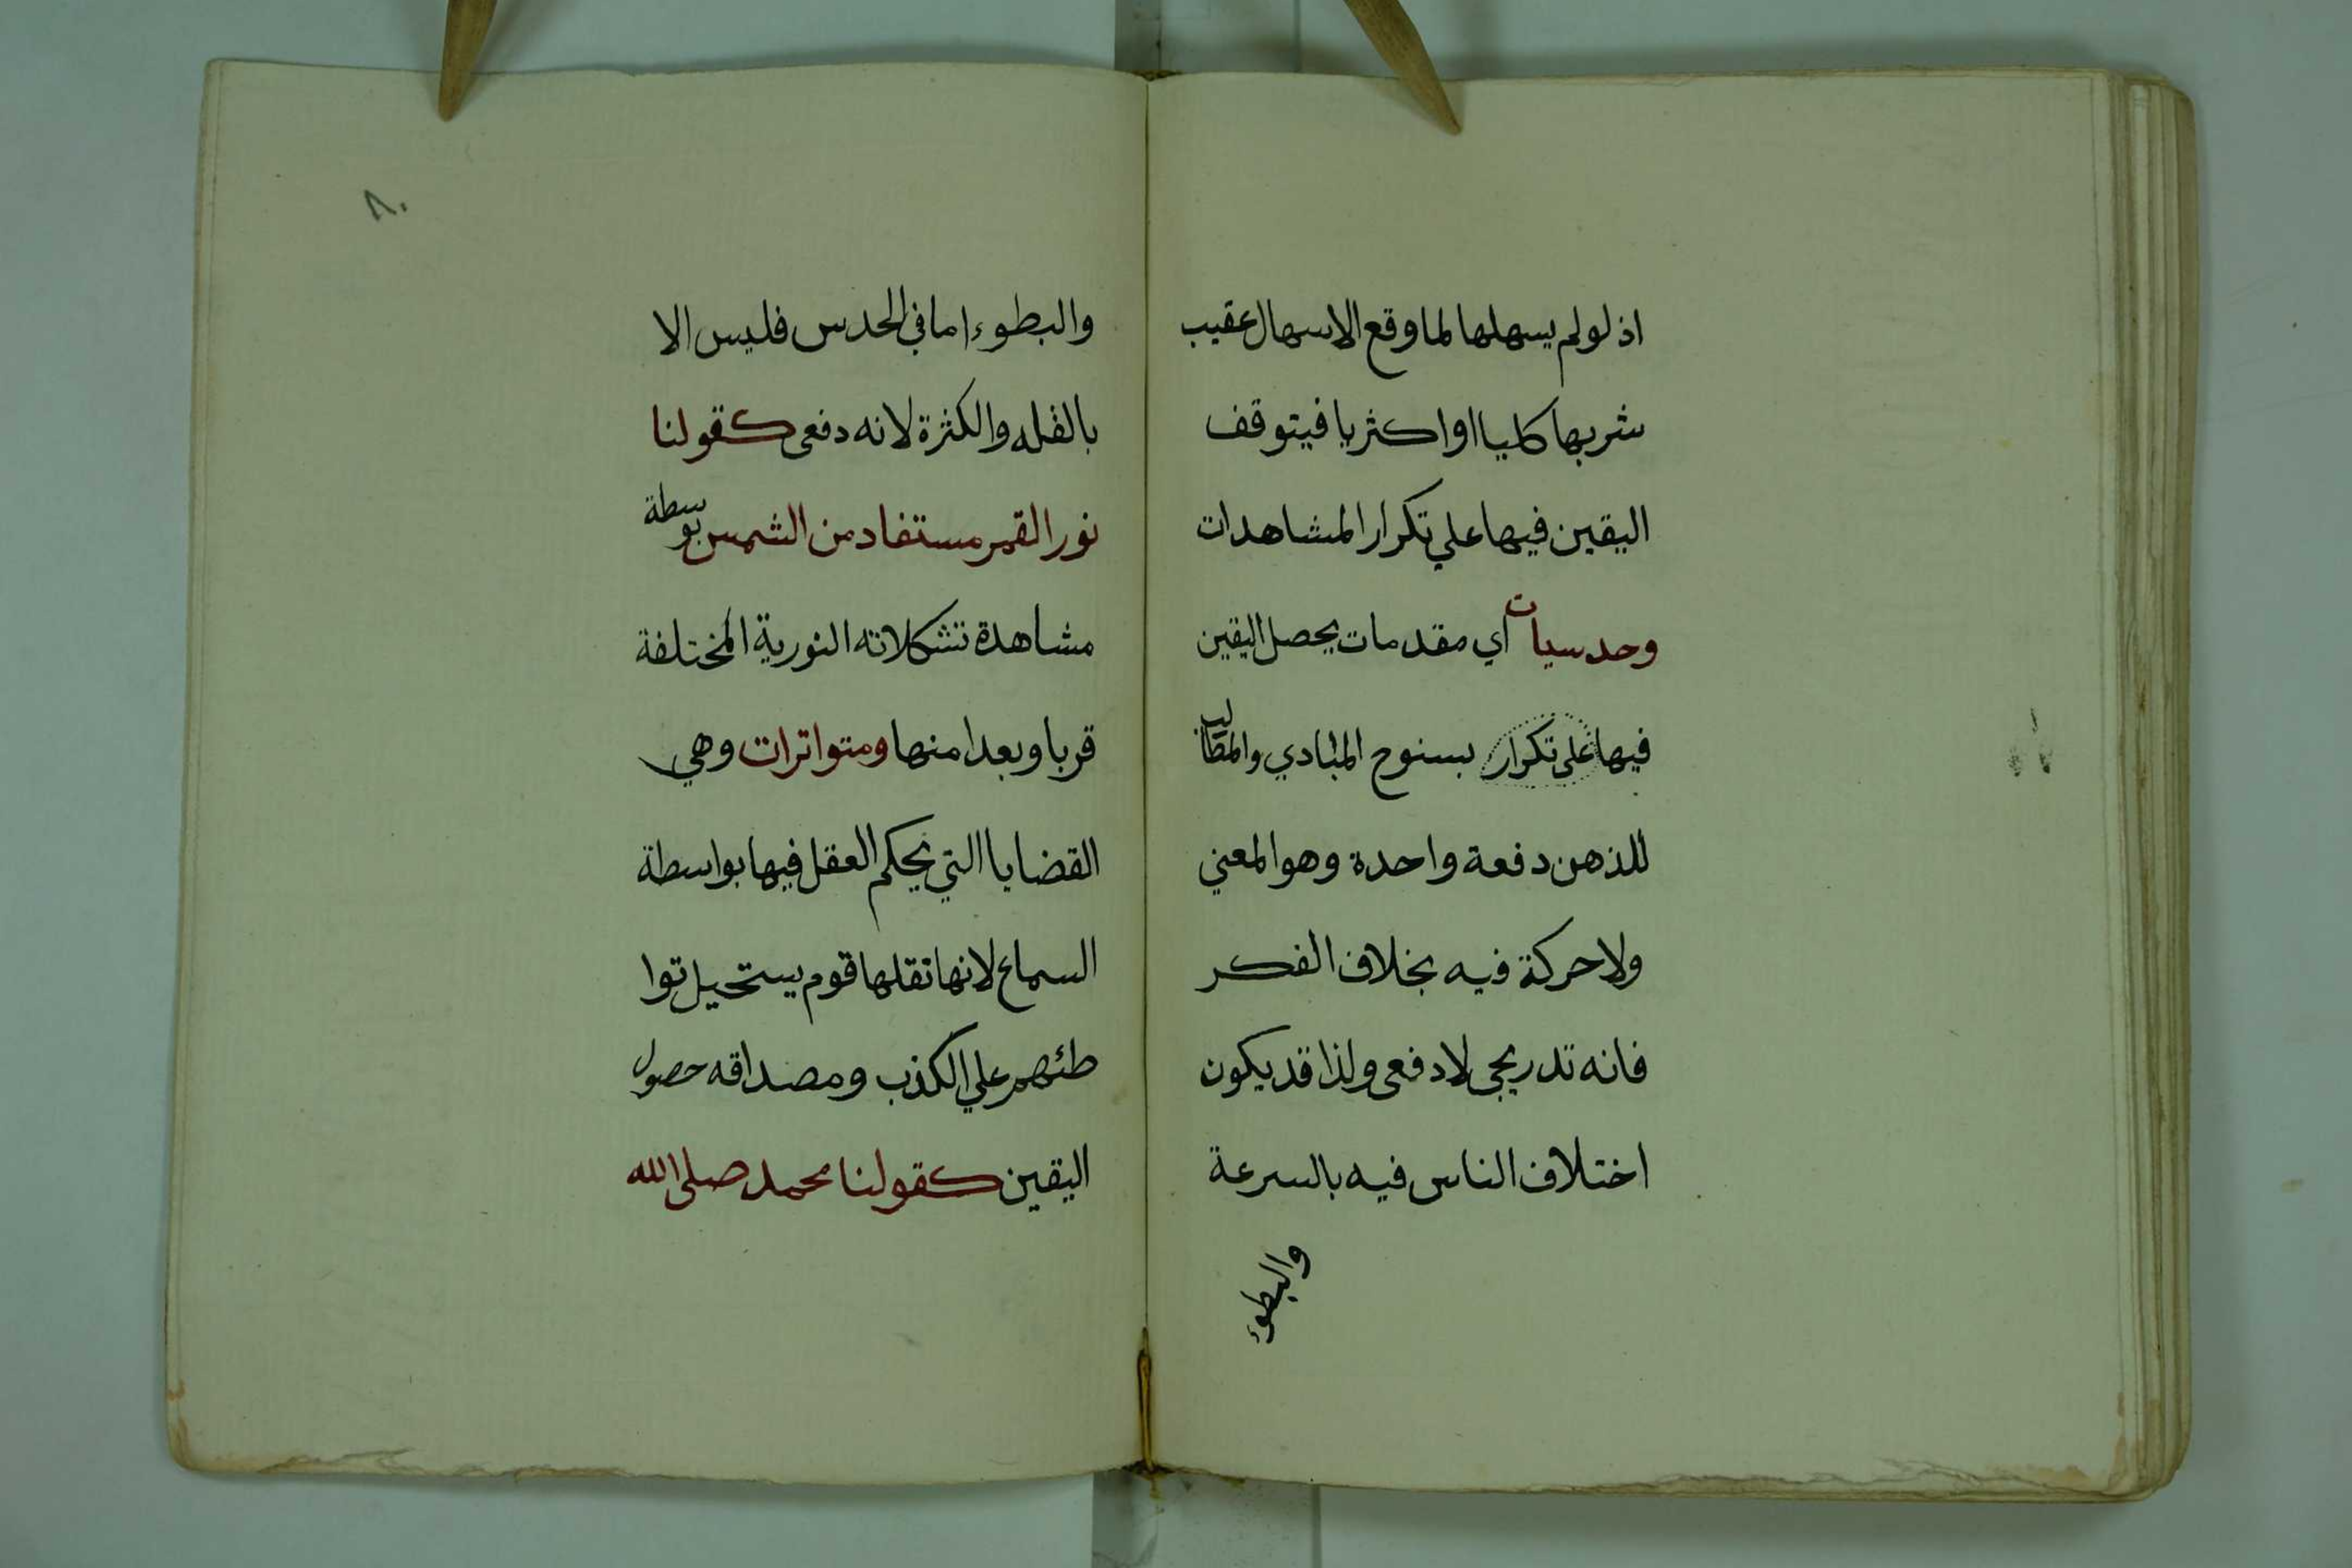 اذ لولم يسهلها لما وقع الاسهال عقيب
شربها كليا او اكثريا فيتوقف
اليقين فيها علي تكرار المشاهدات
وحدسيات اي مقدمات يحصل اليقين
فيها على تكرار بسنوح المبادي والمطالب
للذهن دفعة واحدة وهو المعني
ولا حركة فيه بخلاف الفكر
فانه تدريجى لا دفعى ولذا قد يكون
اختلاف الناس فيه بالسرعة
والبطوء
٨٠
والبطوء اما في الحدس فليس الا
بالقله والكثرة لانه دفعى كقولنا
نور القمر مستفاد من الشمس بوسطة
مشاهدة تشكلاته النورية المختلفة
قربا وبعدا منها ومتواترات وهي
القضايا التي يحكم العقل فيها بواسطة
السماع لانها نقلها قوم يستحيل توا
طئهم علي الكذب ومصداقه حصول
اليقين كقولنا محمد صلى الله